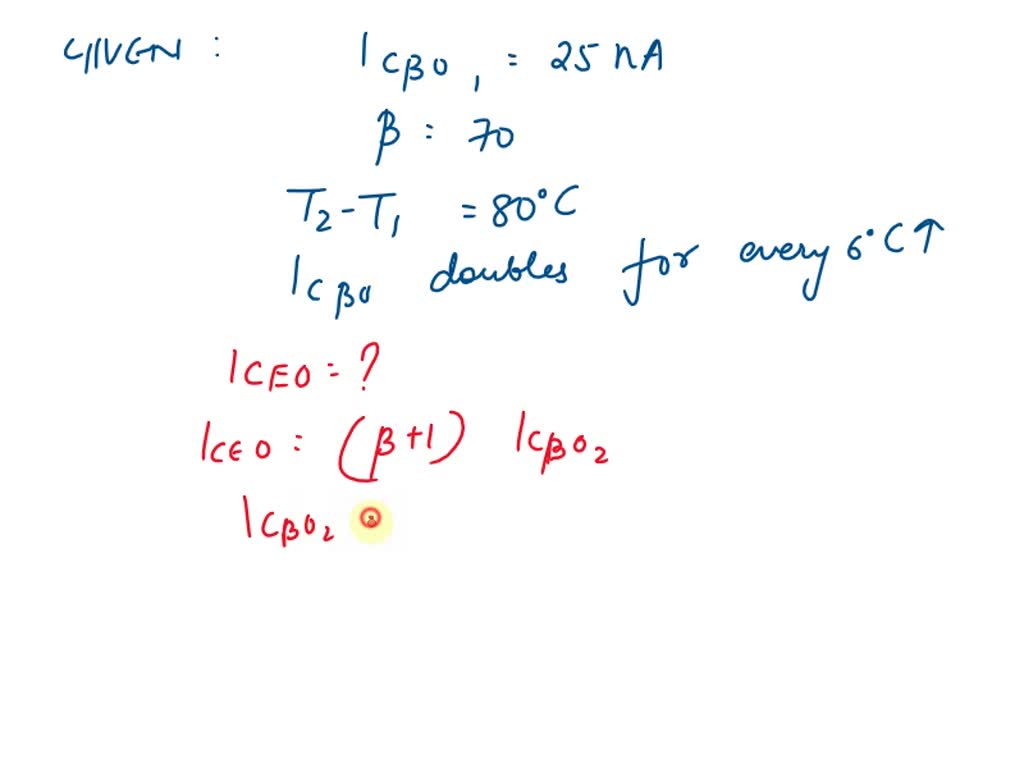 GIVEN : I CBO 1 = 25 nA
β : 70
T2 - T1 = 80°C
I CBO doubles for every 6°C ↑
I CEO = ?
I CEO = (β+1) I CBO2
I CBO2